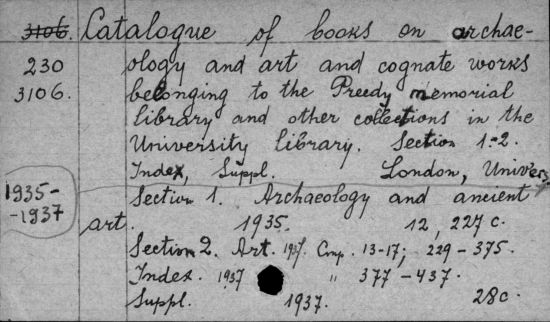 3106. Catalogue of books on archae-
230 ology and art and cognate works
3106. belonging to the Preedy memorial
library and other collections in the
University library. Section 1-2.
Index, Suppl. London, Univers.
1935- Section 1. Archaeology and ancient
-1937 art. 1935. 12, 227 c.
Section 2. Art. 1937. Стр. 13-17; 229-375.
Index. 1937 " 377-437.
Suppl. 1937. 28c.